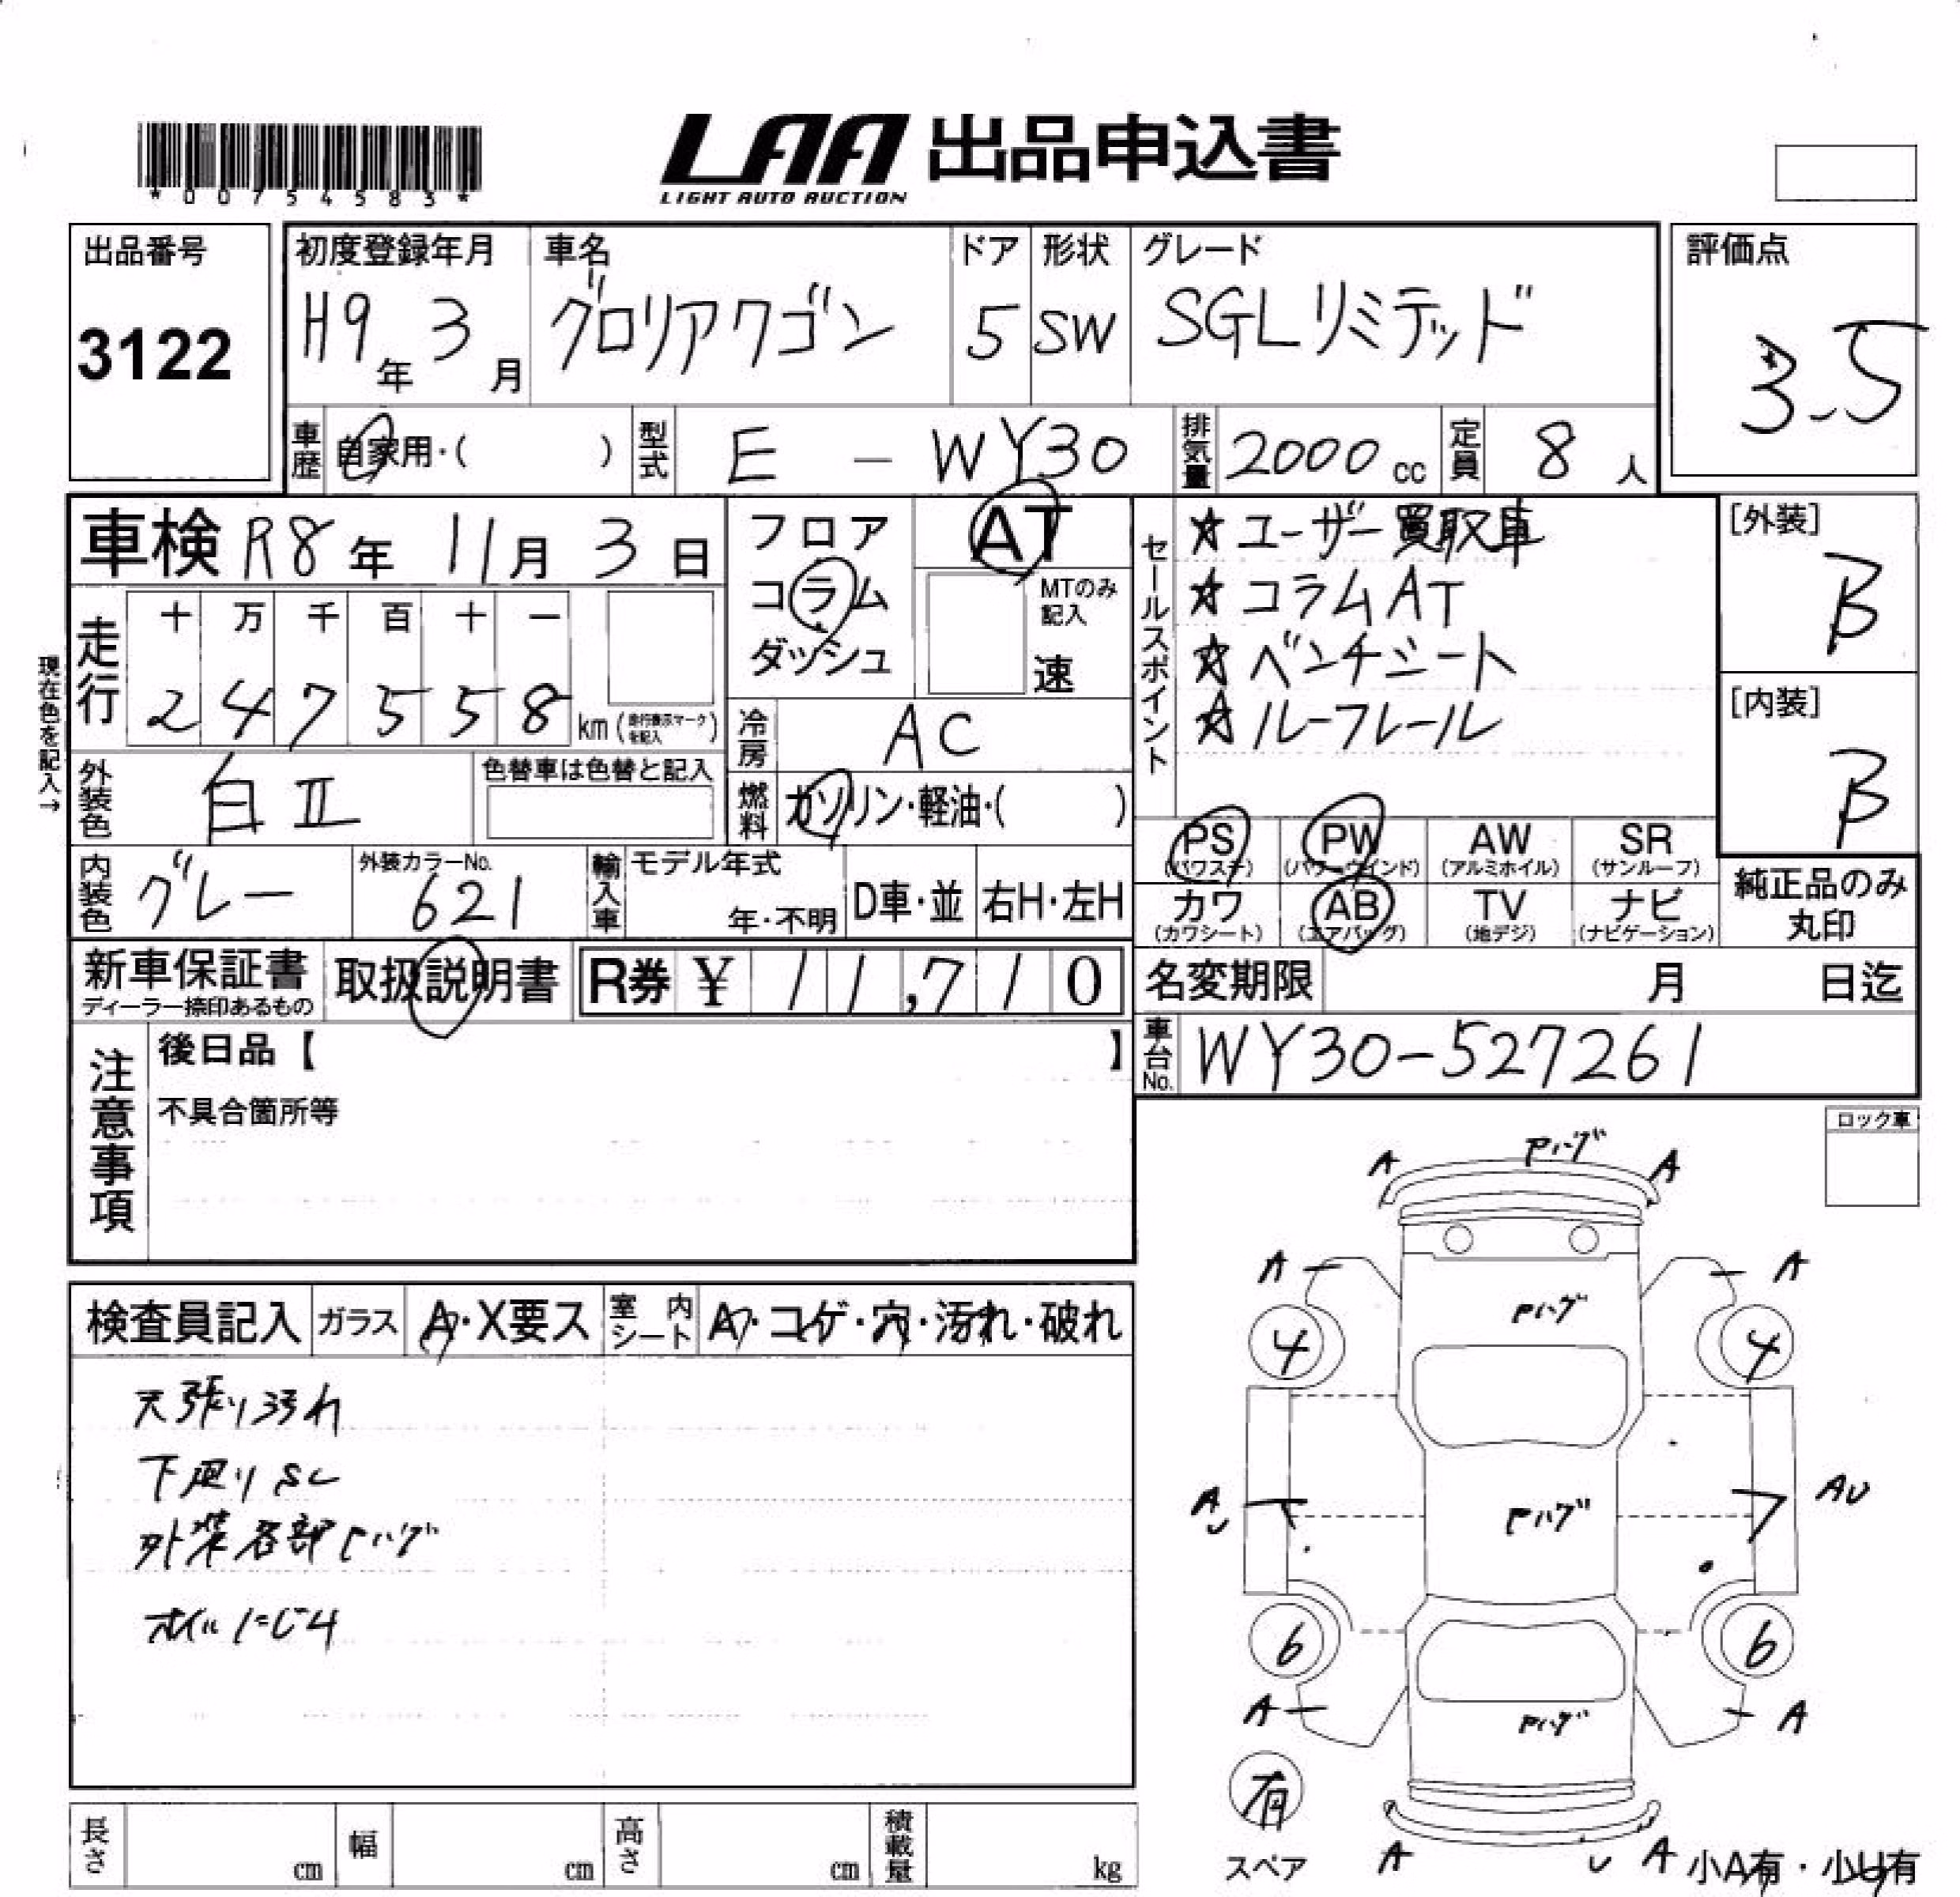 *00754583*
LAA 出品申込書
LIGHT AUTO AUCTION
出品番号
3122
初度登録年月
H9年 3月
車名
グロリアワゴン
ドア
5
形状
SW
グレード
SGLリミテッド
評価点
3.5
車歴 自家用・( )
型式 E - WY30
排気量 2000 cc
定員 8 人
車検 R8年 11月 3日
フロア
コラム
ダッシュ
AT
MTのみ
記入
速
セールスポイント
☆ユーザー買取車
☆コラムAT
☆ベンチシート
☆ルーフレール
[外装]
B
[内装]
B
現在色を記入→
走行
十 万 千 百 十 一
2 4 7 5 5 8 km (走行表示マークを記入)
冷房 AC
燃料 ガソリン・軽油・( )
外装色 白II
色替車は色替と記入
内装色 グレー
外装カラーNo.
621
輸入車 モデル年式
年・不明
D車・並
右H・左H
PS (パワステ)
PW (パワーウインド)
AW (アルミホイル)
SR (サンルーフ)
カワ (カワシート)
AB (エアバッグ)
TV (地デジ)
ナビ (ナビゲーション)
純正品のみ
丸印
新車保証書
ディーラー捺印あるもの
取扱説明書
R券 ¥ 11,710
名変期限 月 日迄
車台No. WY30-527261
注意事項
後日品【 】
不具合箇所等
ロック車
検査員記入
ガラス A・X要ス
室内シート A・コゲ・穴・汚れ・破れ
天張り汚れ
下廻りSC
外装各部Pハゲ
オイルにじみ
A Pハゲ A
A A
Pハゲ
4 4
A U Pハゲ AU
6 6
A Pハゲ A
有
スペア
A U A
小A有・小U有
長さ cm
幅 cm
高さ cm
積載量 kg